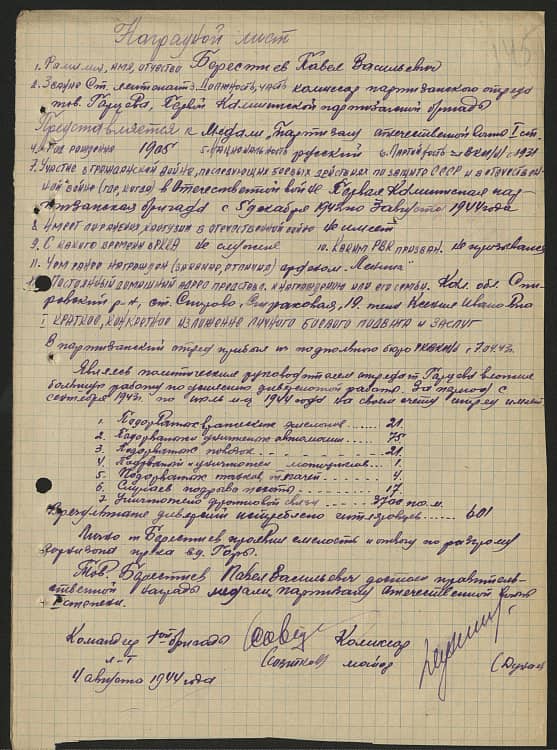 Наградной лист
1. Фамилия, имя, отчество Берестнев Павел Васильевич
2. Звание Ст. лейтенант 3. Должность, часть комиссар партизанского отряда
тов. Гарусева, Первой Калининской партизанской бригады
Представляется к Медали "Партизану отечественной войны I ст.
4. Год рождения 1905 5. Национальность русский 6. Партийность чл. ВКП/б/ с 1931
7. Участие в гражданской войне, последующих боевых действиях по защите СССР и в отечествен
ной войне (где, когда) в Отечественной войне Первая Калининская пар-
тизанская бригада с 5 декабря по 3 августа 1944 года
8. Имеет ли ранения, контузии в отечественной войне не имеет
9. С какого времени в РККА не служил 10. Каким РВК призван. не призывался
11. Чем ранее награжден (за какие отличия) орденом "Ленина"
Постоянный домашний адрес представл. к награждению или его семьи. Кал. обл. Спи-
ровский р-н, ст. Спирово, 19. жена Ксения Ивановна
I Краткое, конкретное изложение личного боевого подвига и заслуг
В партизанский отряд прибыл из подпольного бюро РКВКП/б/ 7.04.43г.
Являясь политическим руководителем отряда т. Гарусева вложил
большую работу по усилению диверсионной работы. За период с
сентября 1943г. по июль м-ц 1944 года на своем счету отряд имеет
1. Подорвано вражеских эшелонов ...... 21.
2. Подорвано и уничтожено автомашин ---- 75
3. Подорвано повозок ---- 21
4. Подорвано и уничтожен мотоциклов ---- 1
5. Подорвано танков, тягачей ---- 4
6. Случаев подрыва пехоты ---- 17
7. Уничтожено фронтовой связи ---- 3700 п.м.
В результате диверсий истреблено гитлеровцев ...... 601
Лично т. Берестнев проявил смелость и отвагу по разгрому
гарнизона пр-ка в д. Горы.
Тов. Берестнев Павел Васильевич достоин правитель-
ственной награды медали партизану отечественной войны
I степени.
Командир 1ой бригады Комиссар
п-п майор
4 августа 1944 года